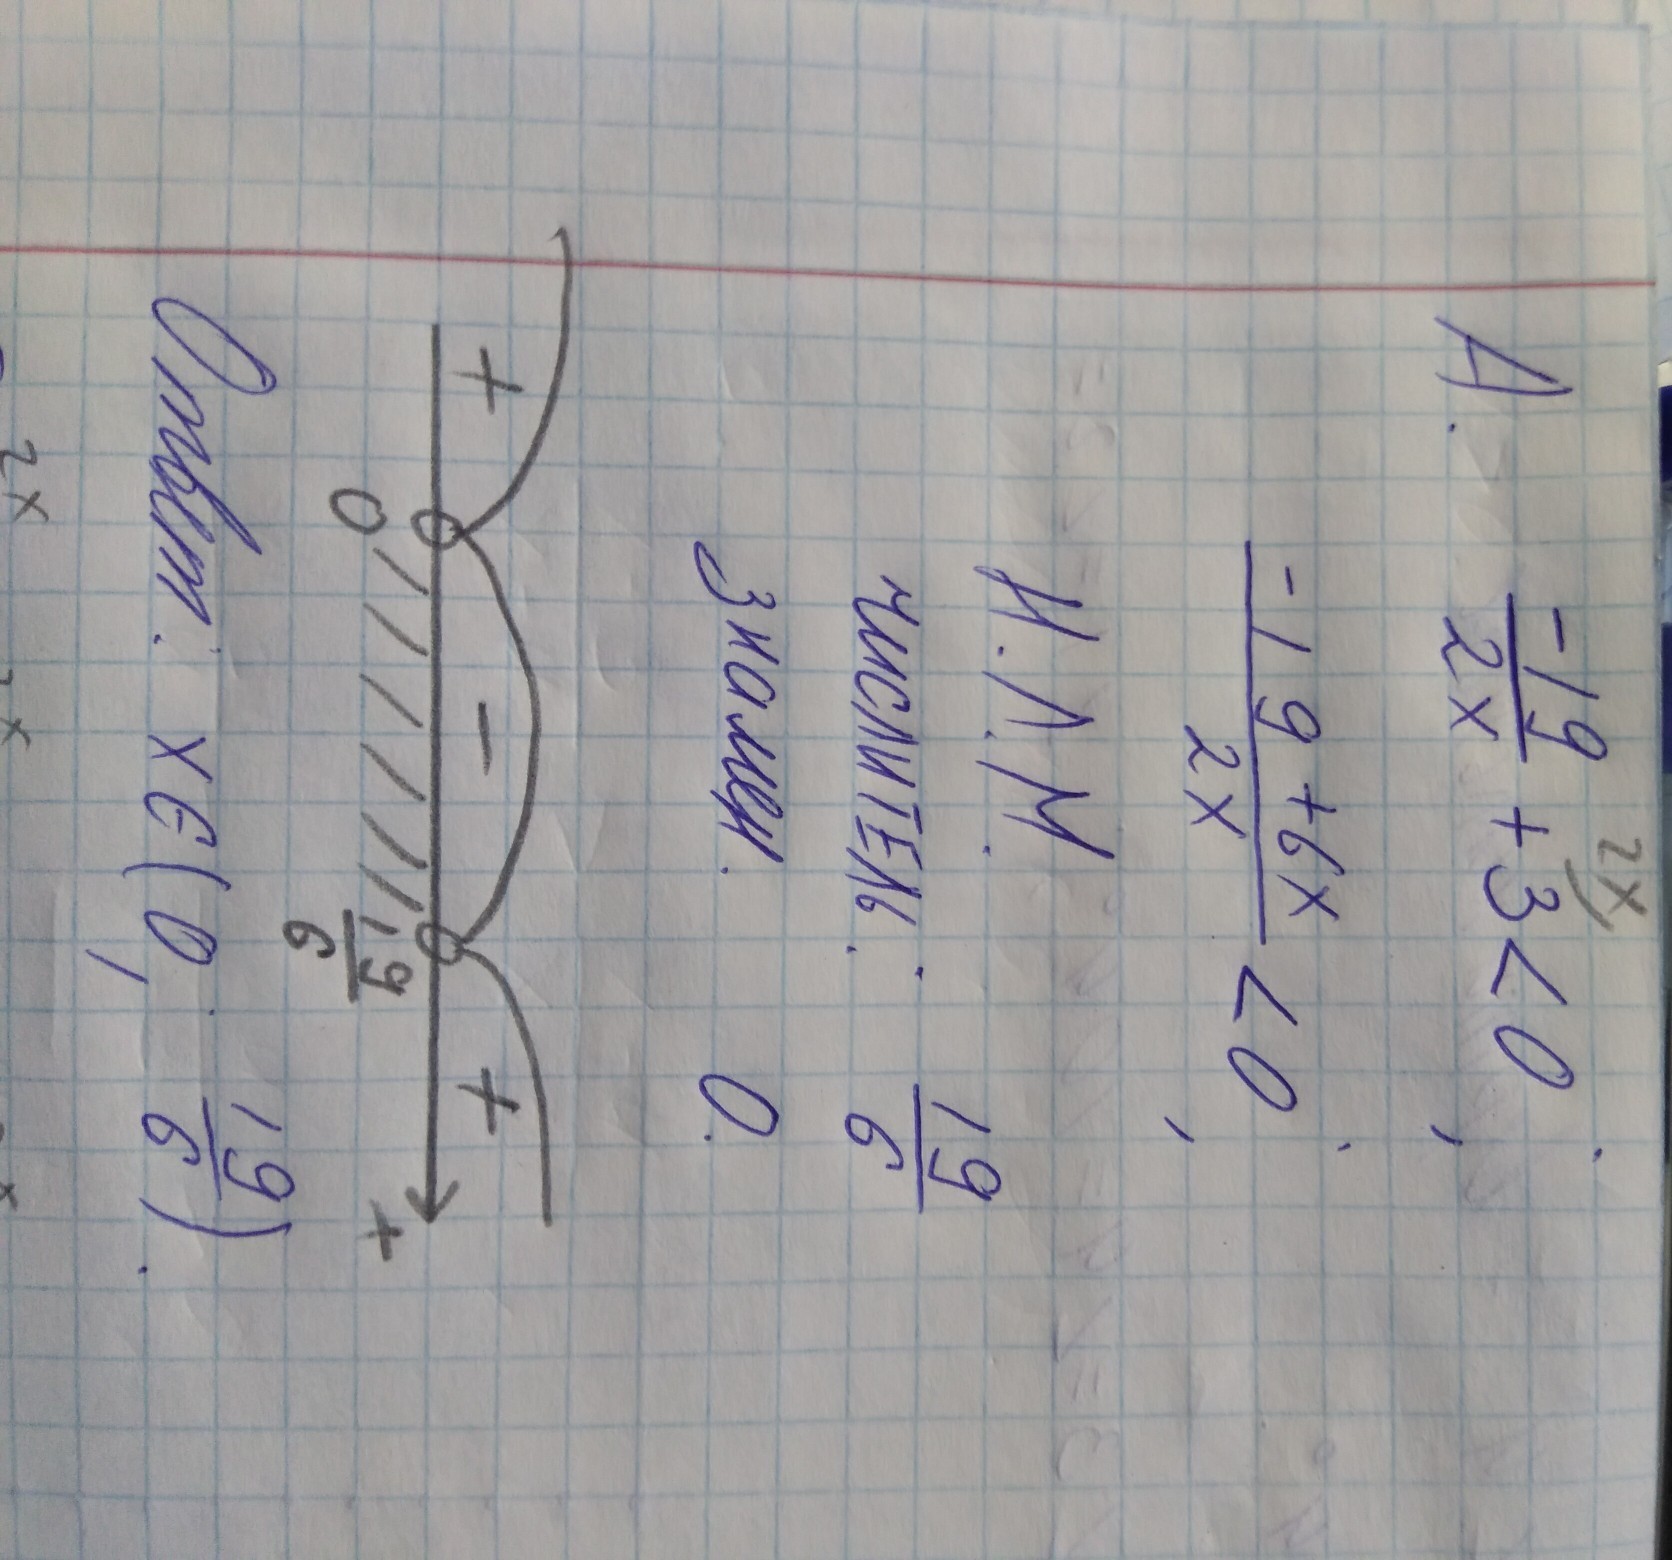 А. -19/2x + 3 < 0;
2x
(-19+6x)/2x < 0;
Н.Л.М.
ЧИСЛИТЕЛЬ: 19/6
Знамен. 0.
+ - +
0 19/6 x
Ответ: x∈(0; 19/6).
2x x